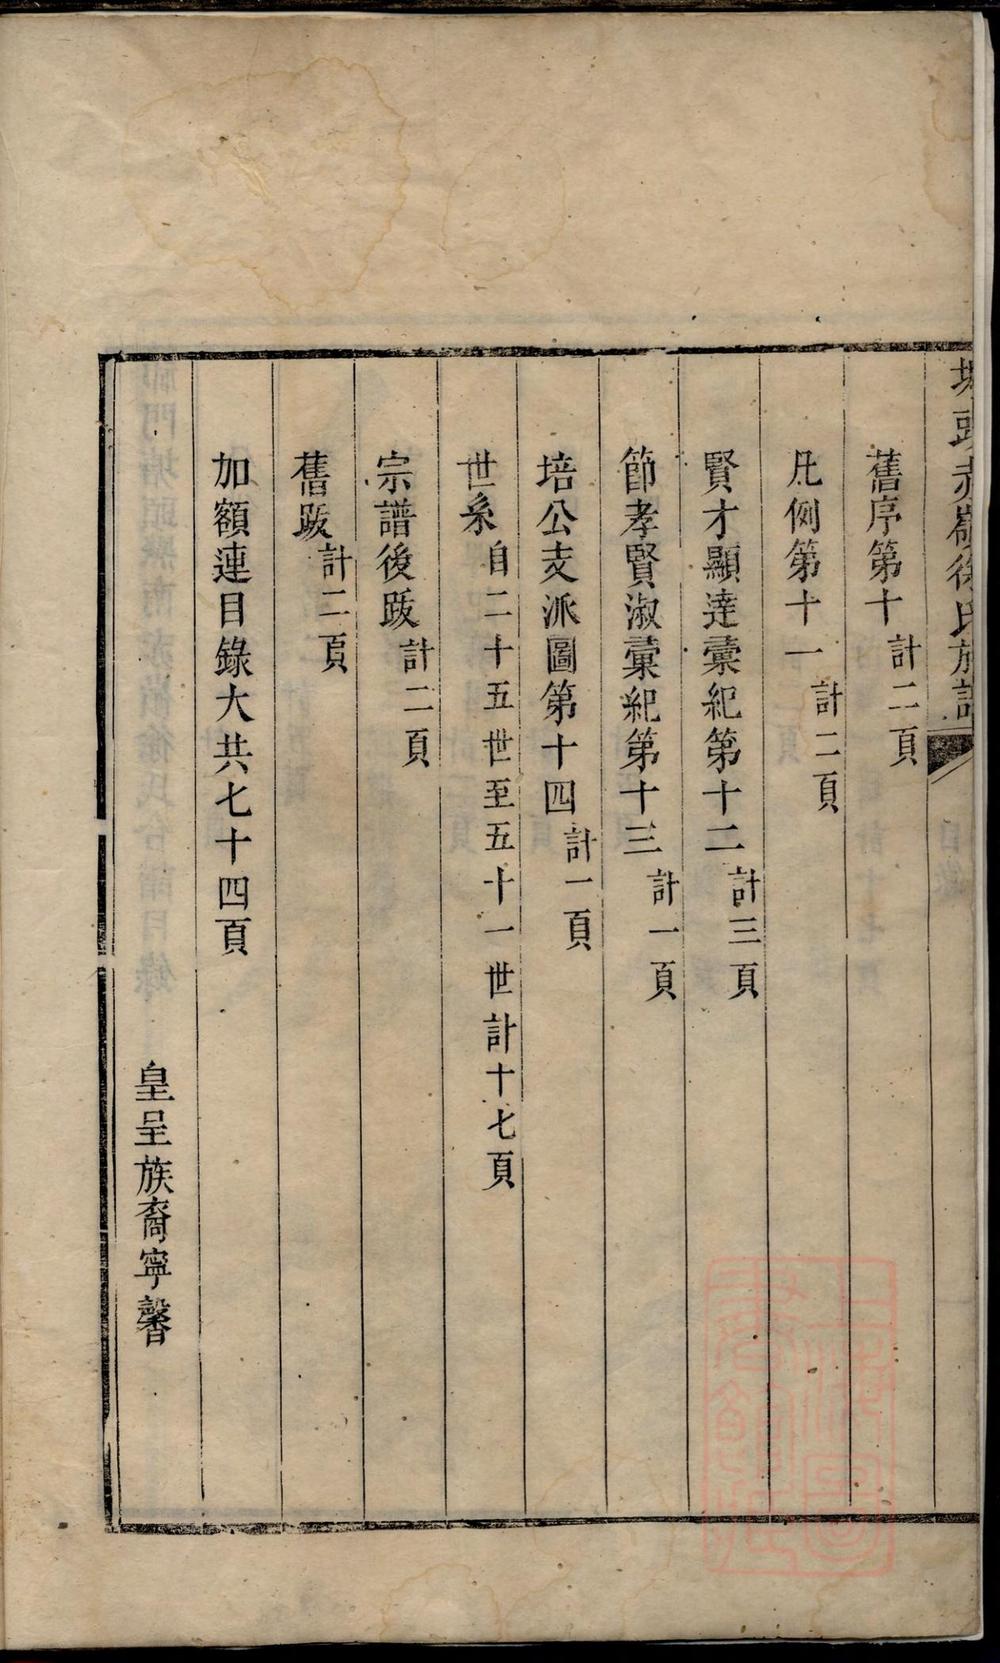 塘頭赤嶺徐氏族譜
舊序第十計二頁
凡例第十一計二頁
賢才顯達彙紀第十二計三頁
節孝賢淑彙紀第十三計一頁
培公支派圖第十四計一頁
世系自二十五世至五十一世計十七頁
宗譜後跋計二頁
舊跋計二頁
加額連目錄大共七十四頁
皇呈族裔寧馨
上海圖書館藏